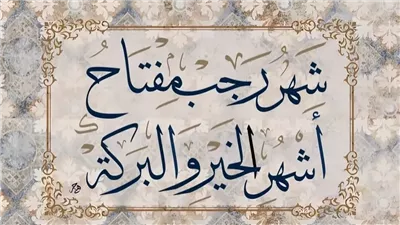 شَهْرُ رَجَب مِفْتَاحُ
أَشْهُرِ الخَيْرِ وَالبَرَكَة